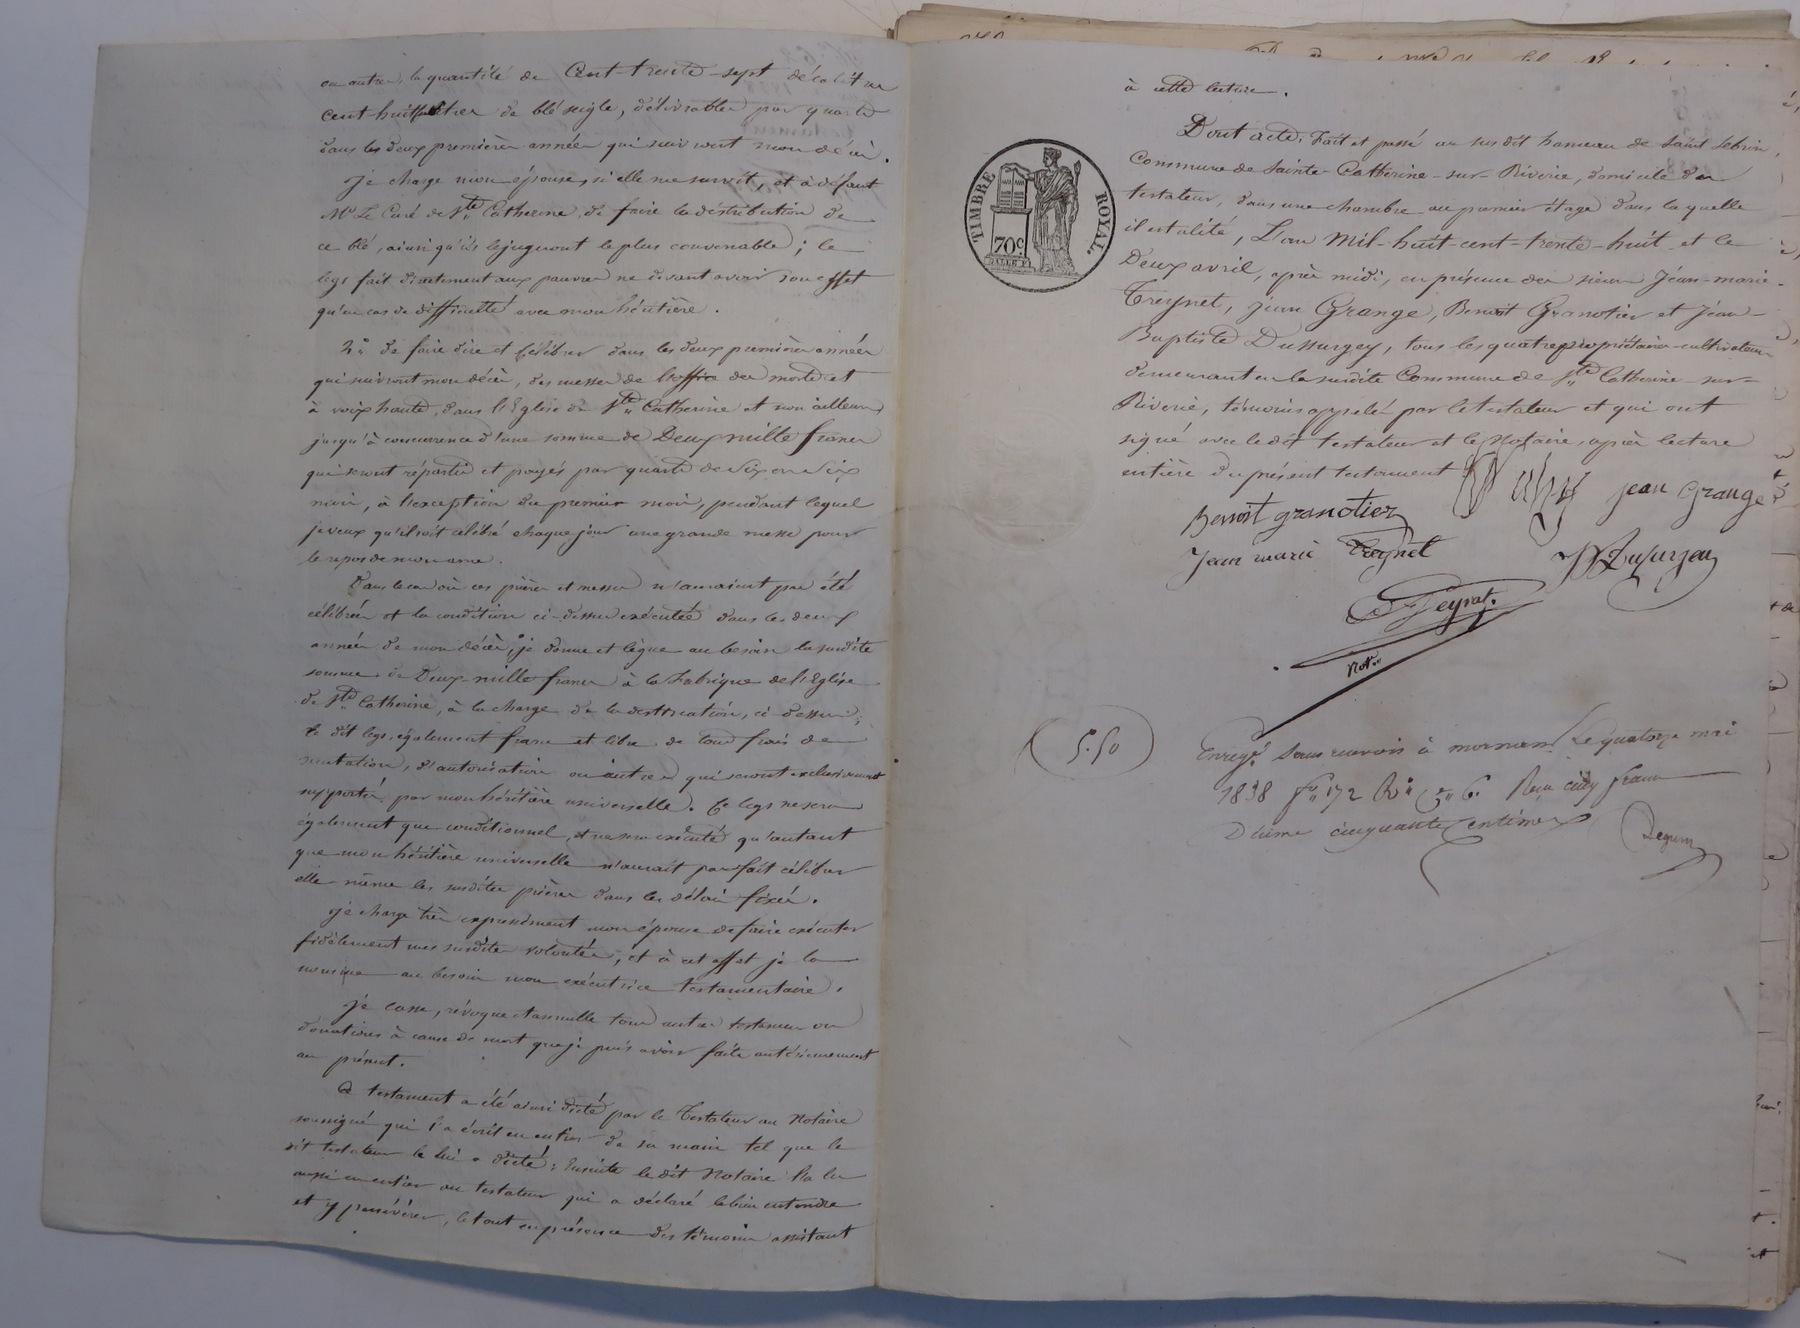 en outre, la quantité de Cent-trente-sept décalitres
cent-huit litres de blé seigle, délivrables par quarts
dans les deux premières années qui suivront mon décès.
Je charge mon épouse, si elle me survit, et à défaut
Mr Le Curé de Ste Catherine, de faire la distribution de
ce blé, ainsi qu'ils le jugeront le plus convenable ; le
legs fait directement aux pauvres ne devant avoir son effet
qu'en cas de difficulté avec mon héritière.
2° de faire dire et célébrer dans les deux premières années
qui suivront mon décès, des messes de l'office des morts et
à voix haute, dans l'Eglise de Ste Catherine et non ailleurs
jusqu'à concurrence d'une somme de Deux mille francs
qui seront répartis et payés par quarts de six en six
mois, à l'exception du premier mois, pendant lequel
je veux qu'il soit célébré chaque jour une grande messe pour
le repos de mon ame.
Dans le cas où ces prières et messes n'auraient pas été
célébrées et la condition ci-dessus exécutée dans les deux
années de mon décès, je donne et lègue au besoin la susdite
somme de Deux-mille francs à la Fabrique de l'Eglise
de Ste Catherine, à la charge de la destination, ci dessus ;
le dit legs, également franc et libre de tous frais de
mutation, d'autorisation ou autres qui seront exclusivement
supportés par mon héritière universelle. Ce legs ne sera
également que conditionnel, et ne sera exécuté qu'autant
que mon héritière universelle n'aurait pas fait célébrer
elle-même les susdites prières dans les délais fixés.
Je charge très expressément mon épouse de faire exécuter
fidèlement mes susdites volontés, et à cet effet je la
nomme au besoin mon exécutrice testamentaire.
Je casse, révoque et annulle tous autres testamens ou
donations à cause de mort que je puis avoir faits antérieurement
au présent.
Ce testament a été ainsi dicté par le Testateur au Notaire
soussigné qui l'a écrit en entier de sa main tel que le
dit testateur le lui a dicté ; Ensuite le dit Notaire l'a lu
aussi en entier au testateur qui a déclaré le bien entendre
et y persévérer, le tout en présence des témoins assistant
à cette lecture.
Dont acte, Fait et passé au susdit hameau de Saint Sebrin,
Commune de Sainte-Catherine-sur-Riverie, domicile du
testateur, dans une chambre au premier étage dans laquelle
il est alité, L'an Mil-huit-cent-trente-huit et le
Deux avril, après midi, en présence des sieurs Jean-marie
Treynet, jean Grange, Benoit Granotier et Jean-
Baptiste Dussurgey, tous les quatre propriétaires-cultivateurs
demeurant en la susdite Commune de Ste Catherine-sur-
Riverie, témoins appelés par le testateur et qui ont
signé avec le dit testateur et le Notaire, après lecture
entière du présent testament
TIMBRE ROYAL.
70c
jean Grange
Benoit granotier
Jean marie Treynet
JB Dusurgey
Peyrat.
Not.re
5.50
Enregé. sans renvois à mornant Le quatorze mai
1838 f° 172 R° c. 6. Reçu cinq francs
Décime cinquante centimes